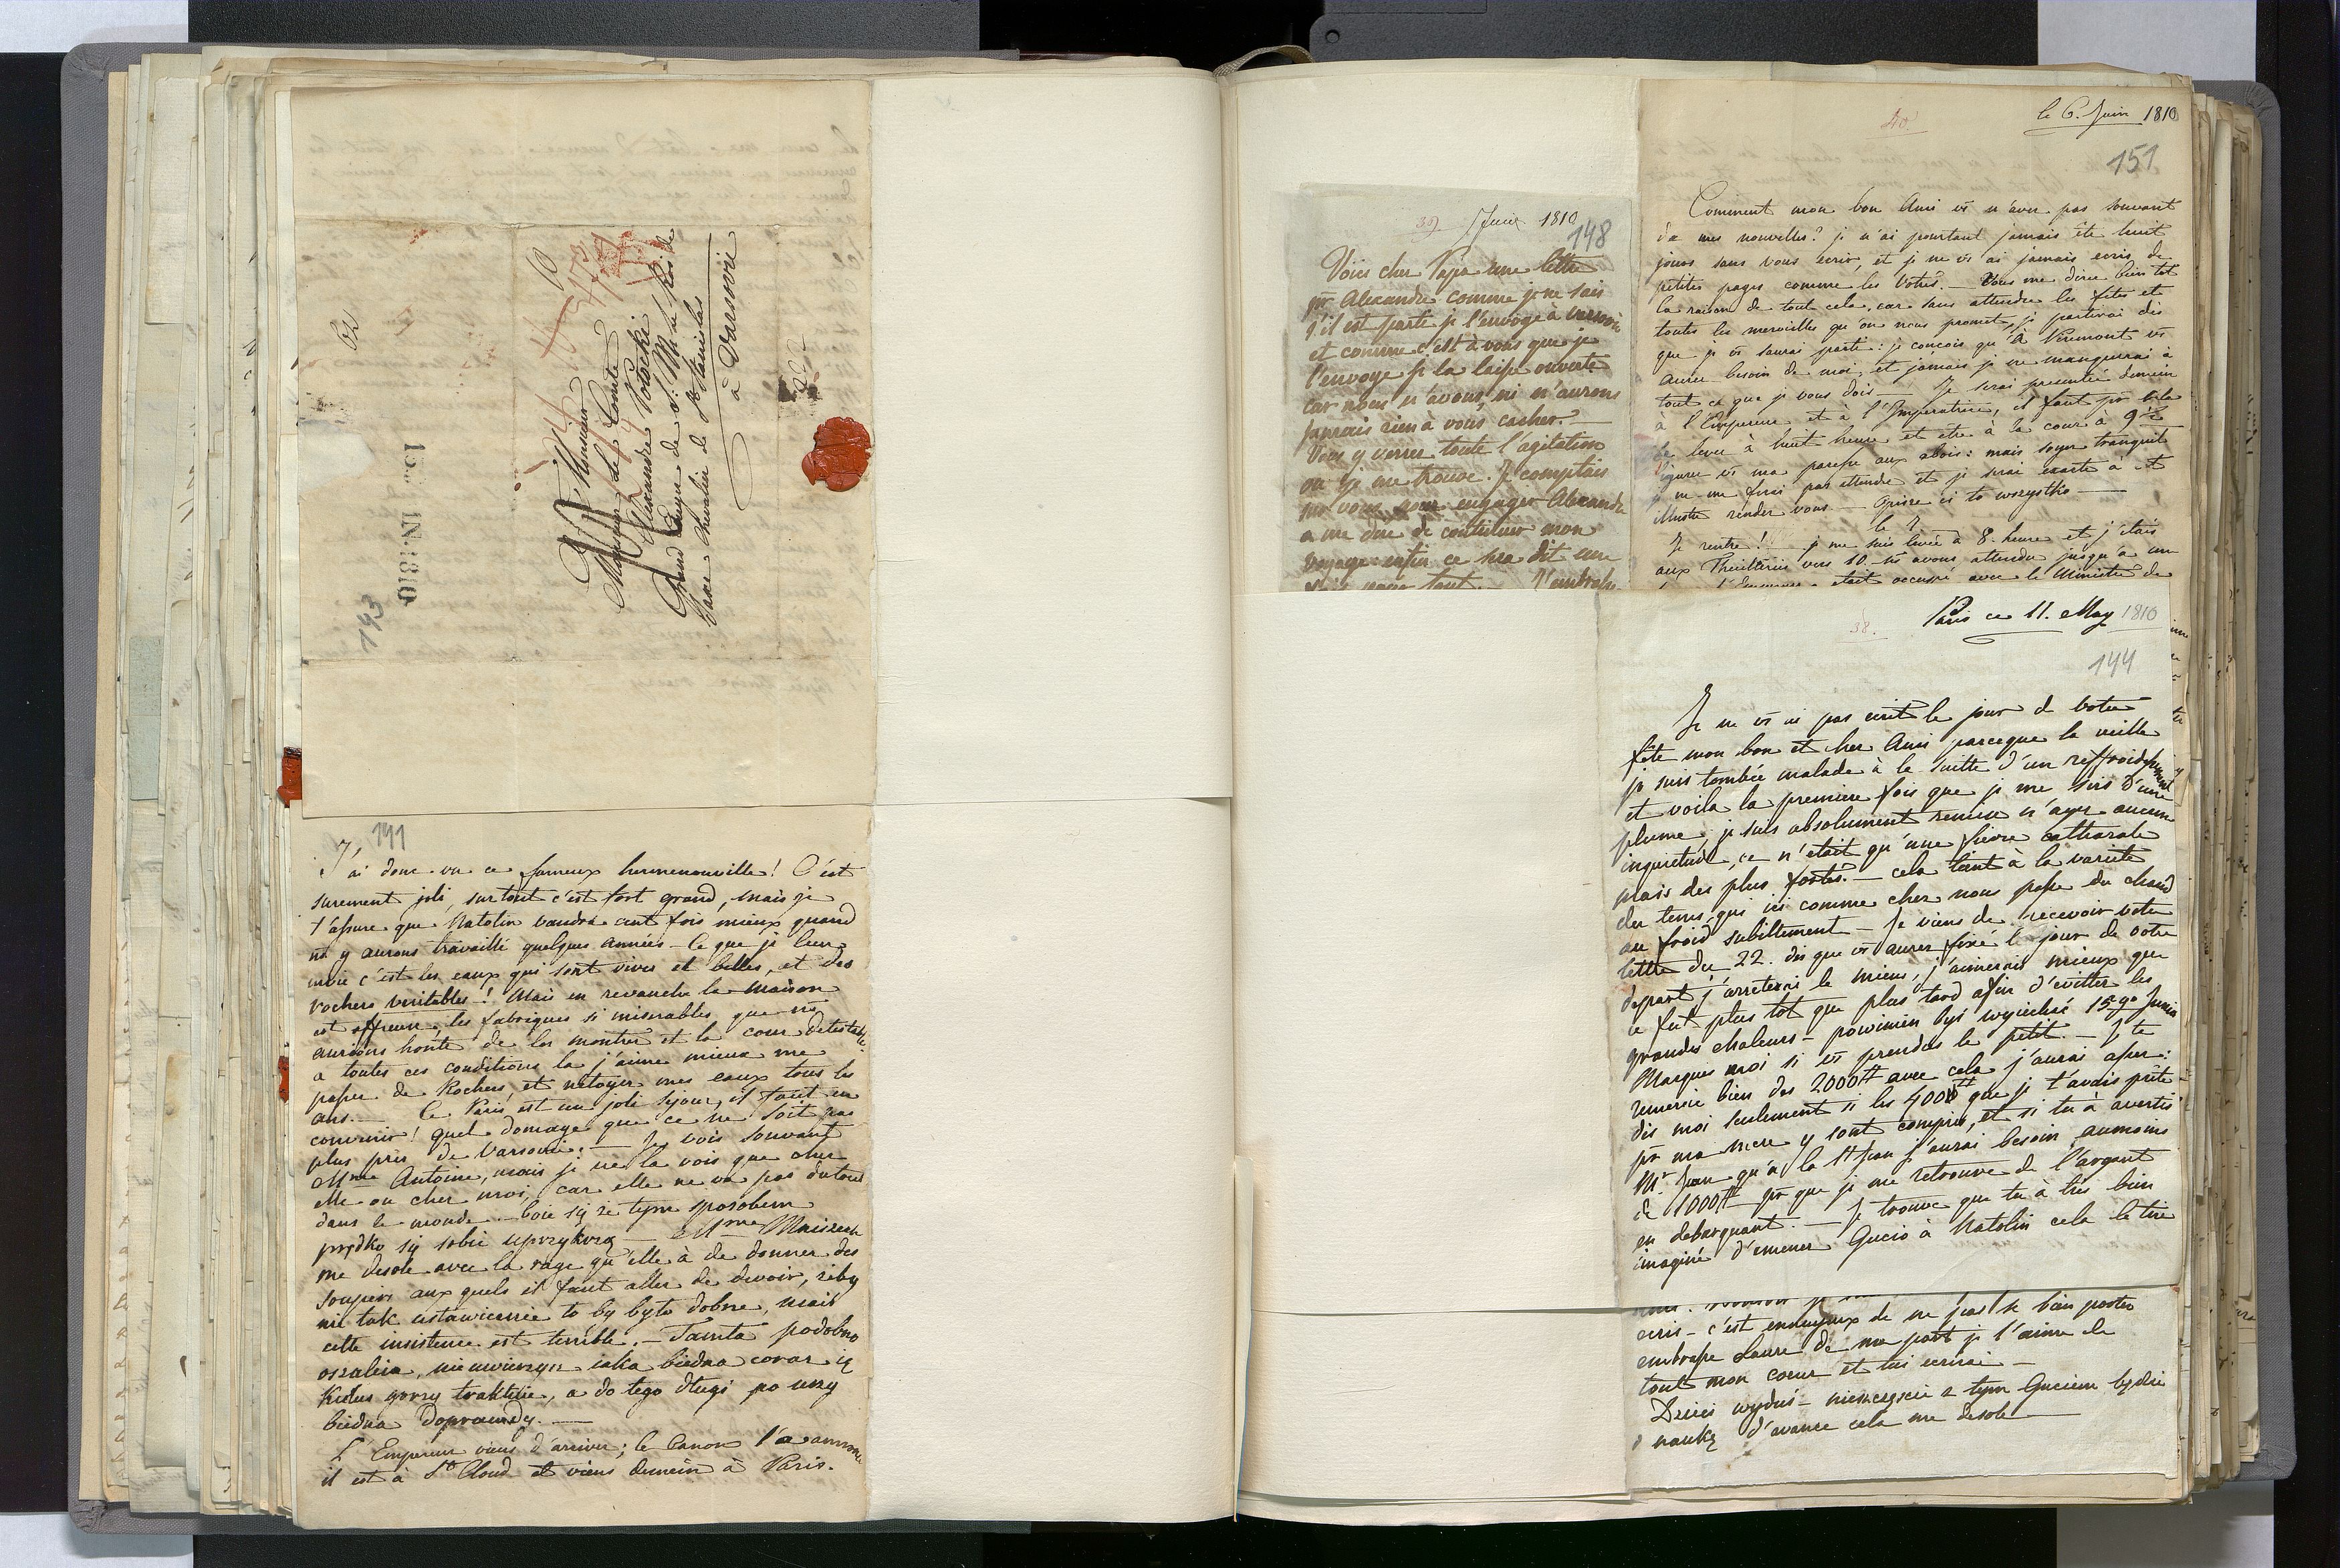 62
193
13. JUIN. 1810
A Monsieur
Monsieur le Comte
Alexandre Potocki
Grand Ecuyer de S. M. le Roi de
Saxe Chevalier de St Stanislas
à Varsovie
141
J'ai donc vu ce fameux hermenonville! C'est
surement joli, surtout c'est fort grand, mais je
t'assure que Natolin vaudra cent fois mieux quand
ns y aurons travaillé quelques années - Ce que je leur
envie c'est les eaux qui sont vives et belles, et des
rochers veritables! Mais en revanche la maison
est affreuse, les fabriques si miserables que ns
aurions honte de les montrer et la cour detestable.
a toutes ces conditions la j'aime mieux me
passer de Rochers, et netoyer mes eaux tous les
ans. - Ce Paris est un joli sejour, il faut en
convenir! quel domage que ce ne soit pas
plus près de Varsovie. - Je vois souvent
Mme Antoine, mais je ne la vois que chez
elle ou chez moi, car elle ne va pas dutout
dans le monde. - boie się że tym sposobem
prędko się sobie uprzykrzą - Mme
me desole avec la rage qu'elle à de donner des
soupers aux quels il faut aller de devoir, żeby
nie tak ustawicznie to by było dobrze, mais
cette insistence est terrible. - Tamta podobno
oszaleia, nie uwierzysz iaka biedna coraz ią
gorzy traktuie, a do tego długi po uszy
biedna doprawdy. -
L'Empereur viens d'arriver; le Canon l'a annoncé
il est à St Cloud et viens demain à Paris.
39 Juin 1810
148
Voici cher Papa une lettre
pr Alexandre comme je ne sais
s'il est parti je l'envoye à varsovie
et comme c'est à vous que je
l'envoye je la laisse ouverte
car nous n'avons, ni n'aurons
jamais rien à vous cacher. -
Vous y verrez toute l'agitation
ou je me trouve. Je comptais
sur vous pour engager Alexandre
a me dire de continuer mon
voyage enfin ce sera dit une
40
le 6. Juin 1810
151
Comment mon bon Ami vs n'avez pas souvent
de mes nouvelles? je n'ai pourtant jamais été huit
jours sans vous ecrir, et je ne vs ai jamais ecris de
petites pages comme les votres. - Vous me direz bien tot
la raison de tout cela, car sans attendre les fetes et
toutes les merveilles qu'on nous promet, je partirai dès
que je vs saurai parti: je conçois qu'à Pirmont vs
aurez besoin de moi, et jamais je ne manquerai à
tout ce que je vous dois - Je serai presentée demain
à l'Empereur et à l'Imperatrice, il faut pr cela
se lever à huit heure et etre à la cour à 9 1/2
figurez vs ma paresse aux abois: mais soyez tranquil
je ne me ferai pas attendre et je serai exacte à cet
illustre rendez vous - Opisze ci to wszystko -
le 7
Je rentre! je me suis levée à 8. heure et j'étais
aux Thuilleries vers 10. ns avons attendu jusqu'a une
l'Empereur etait occupé avec le Ministre de
38.
Paris ce 11. May 1810
144
Je ne vs ai pas ecrit le jour de votre
fête mon bon et cher Ami parceque la veille
je suis tombée malade à la suitte d'un reffroidissement
et voila la premiere fois que je me sers d'une
plume; je suis absolument remise n'ayez aucune
inquietude, ce n'était qu'une fievre catharale
mais des plus fortes. - cela tient à la varieté
du tems, qui ici comme chez nous passe du chaud
au froid subittement - Je viens de recevoir votre
lettre du 22. dès que vs aurez fixé le jour de votre
depart j'arreterai le mien, j'aimerois mieux que
ce fut plus tot que plus tard afin d'eviter les
grandes chaleurs - powinien byś wyiechać 15go Junia
Marquez moi si vs prendrez le petit. - Je te
remercie bien des 2000# avec cela j'aurai assez:
dis moi seulement si les 400# que je t'avais prete
pr ma mere y sont compris, et si tu à avertis
Mr. Jean qu'a la St Jean j'aurai besoin aumoins
de 1000# pr que je me retrouve de l'argent
en debarquant. - Je trouve que tu à très bien
imaginé d'emener Gucio à Natolin cela le tire
ecris - c'est ennuyeux de ne pas se bien porter
embrasse Laure de ma part je l'aime de
tout mon coeur et lui ecrirai -
Dzieci wyduś - nieszczęście z tym Guciem będzie
o naukę d'avance cela me desole -